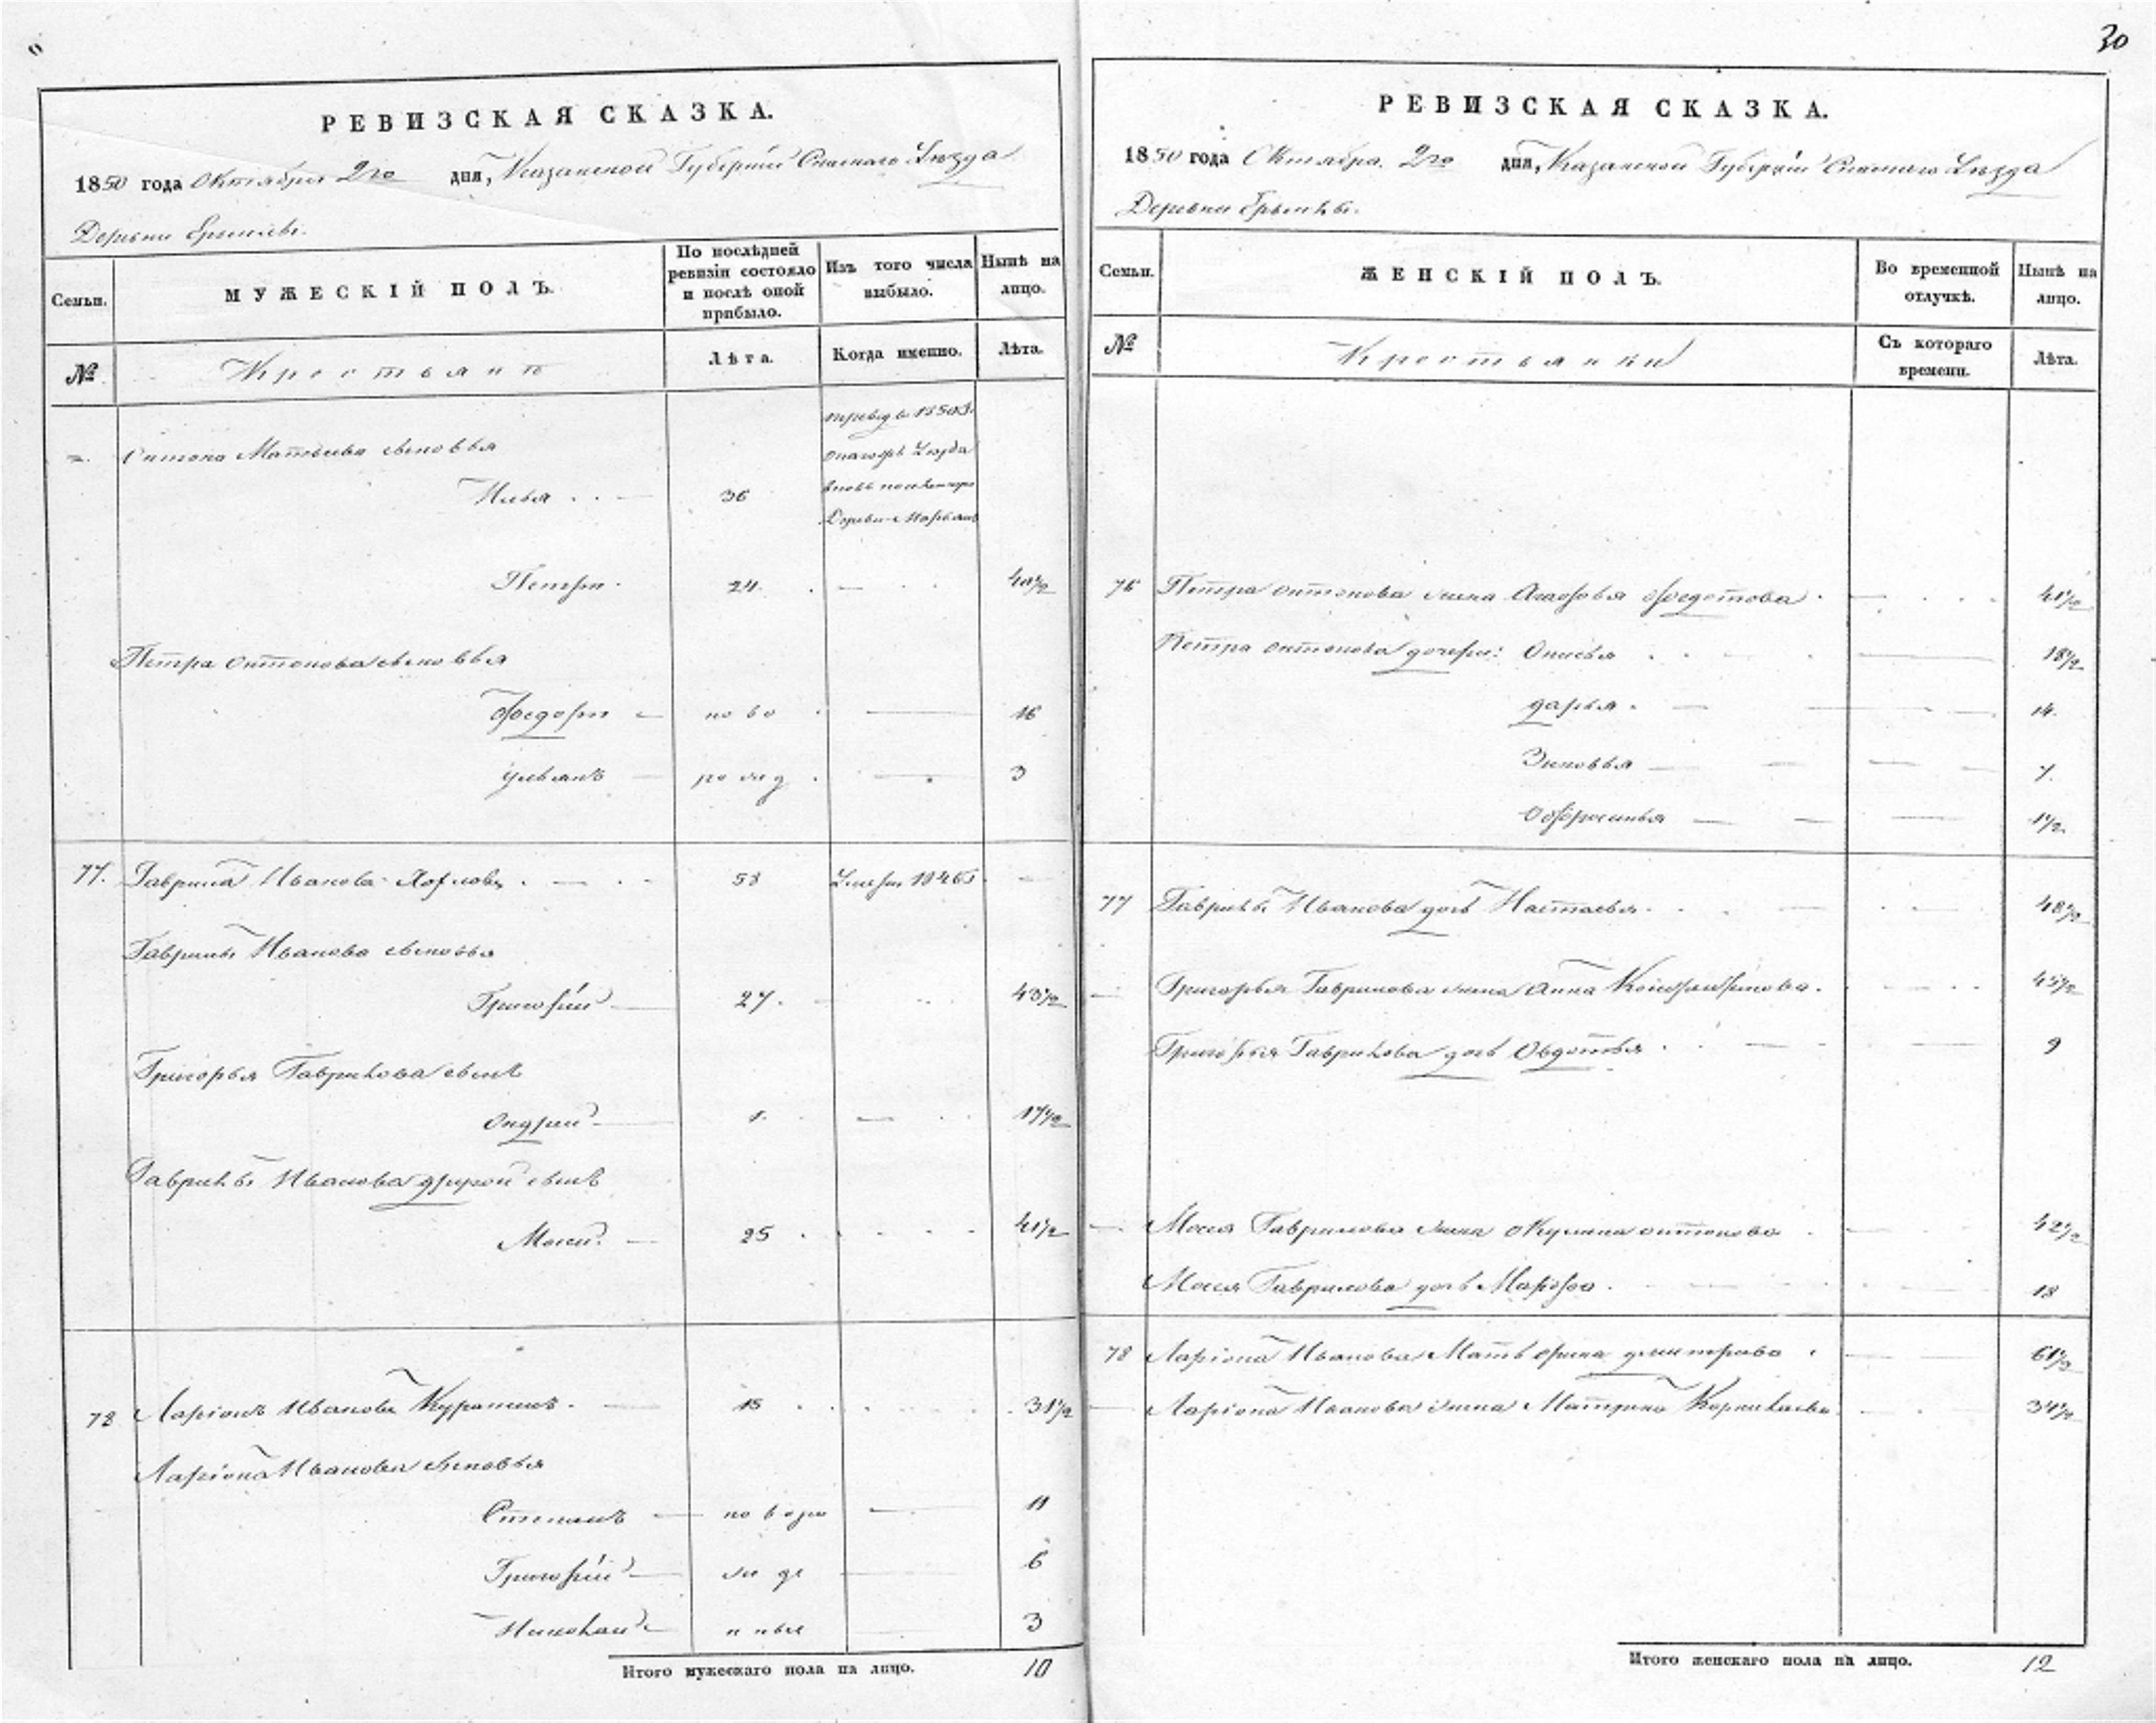 30
РЕВИЗСКАЯ СКАЗКА.
1850 года Октября 2го дня, Казанской Губернiи Спаскаго Уѣзда
Деревни
Семьи.
МУЖЕСКІЙ ПОЛЪ.
По послѣдней ревизіи состояло и послѣ оной прибыло.
Изъ того числа выбыло.
Нынѣ на лицо.
№
Крестьяне
Лѣта.
Когда именно.
Лѣта.
перевед въ 1850 г.
Антона Матвеева сыновья
Уѣзда
вновь
Илья 36
Деревн
Петръ 24 40½
Петра Онтонова сыновья
Федоръ ново 16
Ульянъ рожд 3
77. Гаврила Иванова 53 Умеръ 1846
Гаврилы Иванова сыновья
Григорій 27. 43½
Григорья Гаврилова сынъ
Ондрей 1. 17½
Гаврилы Иванова другой сынъ
Мосей 25 41½
78 Ларіонъ Ивановъ 15 31½
Ларіона Иванова сыновья
Степанъ новоро 11
Григорій жде 6
Николай нные 3
Итого мужескаго пола на лицо. 10
РЕВИЗСКАЯ СКАЗКА.
1850 года Октября 2го дня, Казанской Губерніи Спаскаго Уѣзда
Деревни
Семьи.
ЖЕНСКІЙ ПОЛЪ.
Во временной отлучкѣ.
Нынѣ на лицо.
№
Крестьянки
Съ котораго времени.
Лѣта.
76 Петра Онтонова жена Федотова 41½
Петра Онтонова дочери: Онисья 18½
Дарья 14.
Зиновья 7.
Офросинья 1½.
77 Гаврилы Иванова дочь Настасья 48½
Григорья Гаврилова жена Анна 45½
Григорья Гаврилова дочь Овдотья 9
Мосея Гаврилова жена Окулина Онтонова 42½
Мосея Гаврилова дочь Марфа 18
78 Ларіона Иванова Мать Орина Дмитрева 61½
Ларіона Иванова жена Матрена Корнилаева 34½
Итого женскаго пола на лицо. 12